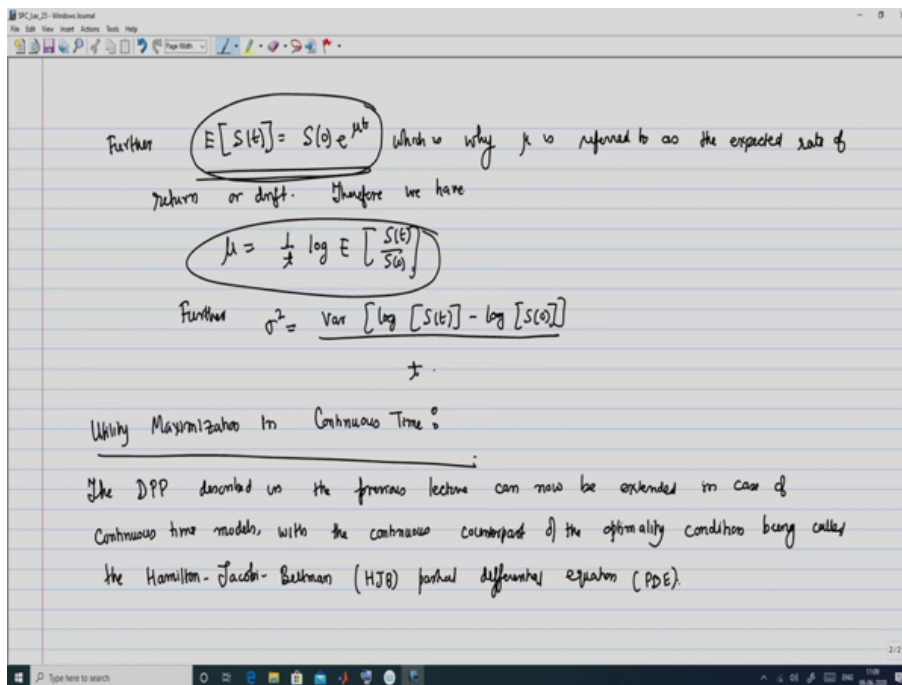 SPC_Lec_25 - Windows Journal
File Edit View Insert Actions Tools Help
Page Width
Further E[S(t)] = S(0) e^{μt} which is why μ is referred to as the expected rate of
return or drift. Therefore we have
μ = 1/t log E [S(t)/S(0)]
Further σ² = Var [log [S(t)] - log [S(0)]]
t
Utility Maximization In Continuous Time :
The DPP described in the previous lecture can now be extended in case of
Continuous time models, with the continuous counterpart of the optimality condition being called
the Hamilton-Jacobi-Bellman (HJB) partial differential equation (PDE).
2/2
Type here to search
ENG
11:09